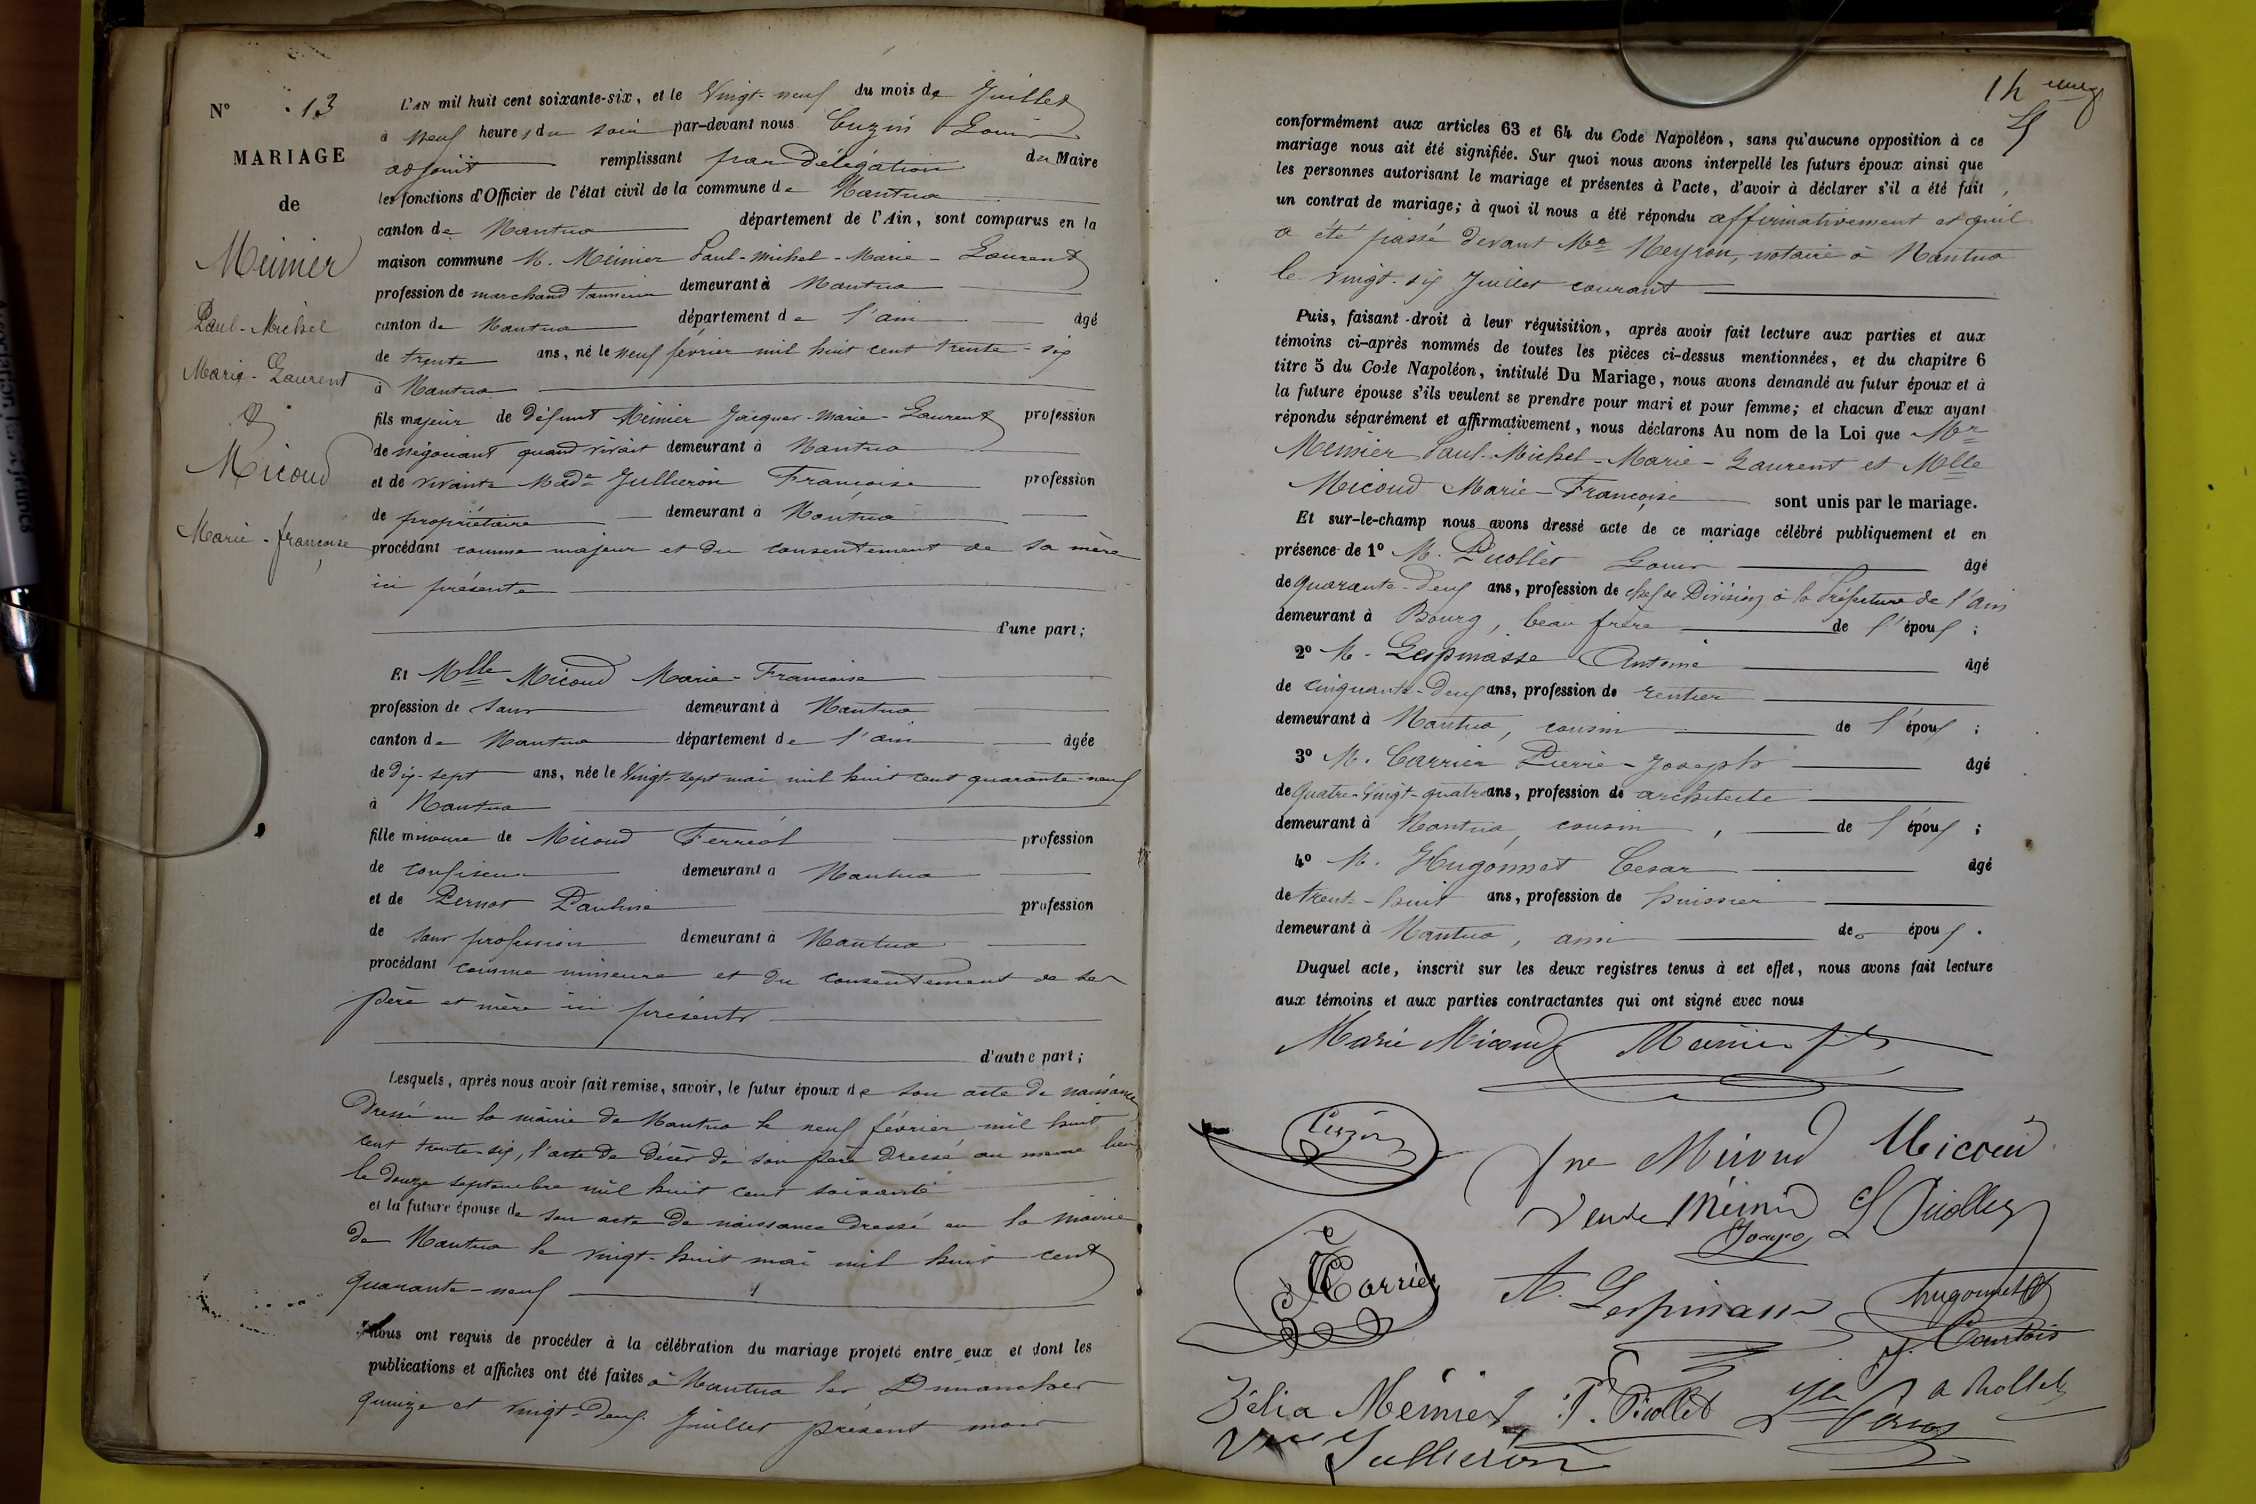 N° 13
MARIAGE
de
Meinier
Paul-Michel
Marie-Laurent
&
Micoud
Marie-françoise
L'AN mil huit cent soixante-six, et le Vingt-neuf du mois de Juillet
à neuf heures du soir par-devant nous Cuzin Louis
adjoint remplissant par délégation du Maire
les fonctions d'Officier de l'état civil de la commune de Nantua
canton de Nantua département de l'Ain, sont comparus en la
maison commune M. Meinier Paul-Michel-Marie-Laurent
profession de marchand tanneur demeurant à Nantua
canton de Nantua département de l'ain âgé
de trente ans, né le neuf février mil huit cent trente-six
à Nantua
fils majeur de défunt Meinier Jacques-Marie-Laurent profession
de négociant quand vivait demeurant à Nantua
et de vivante Made Jullieron Françoise profession
de propriétaire demeurant à Nantua
procédant comme majeur et du consentement de sa mère
ici présente
d'une part;
Et Mlle Micoud Marie-Francoise
profession de sans demeurant à Nantua
canton de Nantua département de l'ain âgée
de dix-sept ans, née le Vingt-sept mai mil huit cent quarante-neuf
à Nantua
fille mineure de Micoud Ferréol profession
de confiseur demeurant à Nantua
et de Pernot Pauline profession
de sans profession demeurant à Nantua
procédant comme mineure et du consentement de ses
père et mère ici présents
d'autre part;
Lesquels, après nous avoir fait remise, savoir, le futur époux de son acte de naissance
dressé en la mairie de Nantua le neuf février mil huit
cent trente-six, l'acte de décès de son père dressé au meme lieu
le douze septembre mil huit cent soixante
et la future épouse de son acte de naissance dressé en la Mairie
de Nantua le vingt-huit mai mil huit cent
quarante-neuf
nous ont requis de procéder à la célébration du mariage projeté entre eux et dont les
publications et affiches ont été faites à Nantua les Dimanches
quinze et vingt-deux Juillet présent mois
conformément aux articles 63 et 64 du Code Napoléon, sans qu'aucune opposition à ce
mariage nous ait été signifiée. Sur quoi nous avons interpellé les futurs époux ainsi que
les personnes autorisant le mariage et présentes à l'acte, d'avoir à déclarer s'il a été fait
un contrat de mariage; à quoi il nous a été répondu affirmativement et qu'il
a été passé devant Me Neyron, notaire à Nantua
le vingt-six Juillet courant
Puis, faisant droit à leur réquisition, après avoir fait lecture aux parties et aux
témoins ci-après nommés de toutes les pièces ci-dessus mentionnées, et du chapitre 6
titre 5 du Code Napoléon, intitulé Du Mariage, nous avons demandé au futur époux et à
la future épouse s'ils veulent se prendre pour mari et pour femme; et chacun d'eux ayant
répondu séparément et affirmativement, nous déclarons Au nom de la Loi que Mr
Meinier Paul-Michel-Marie-Laurent et Mlle
Micoud Marie-Françoise sont unis par le mariage.
Et sur-le-champ nous avons dressé acte de ce mariage célébré publiquement et en
présence de 1° M. Picollet Louis âgé
de quarante-deux ans, profession de chef de Division à la Préfecture de l'ain
demeurant à Bourg, beau frère de l'époux;
2° M. Lespinasse Antoine âgé
de cinquante-deux ans, profession de rentier
demeurant à Nantua, cousin de l'époux;
3° M. Carrier Pierre-Joseph âgé
de quatre-vingt-quatre ans, profession de architecte
demeurant à Nantua, cousin, de l'époux;
4° M. Hugonnet Cesar âgé
de trente-huit ans, profession de huissier
demeurant à Nantua, ami des époux.
Duquel acte, inscrit sur les deux registres tenus à cet effet, nous avons fait lecture
aux témoins et aux parties contractantes qui ont signé avec nous
Marie Micoud Meinier fils
Cuzin
fne Micoud Micoud
Veuve Meinier L Picollet
Carrier
A. Lespinasse hugonnet
Zélia Meinier P. Picollet
Jullieron